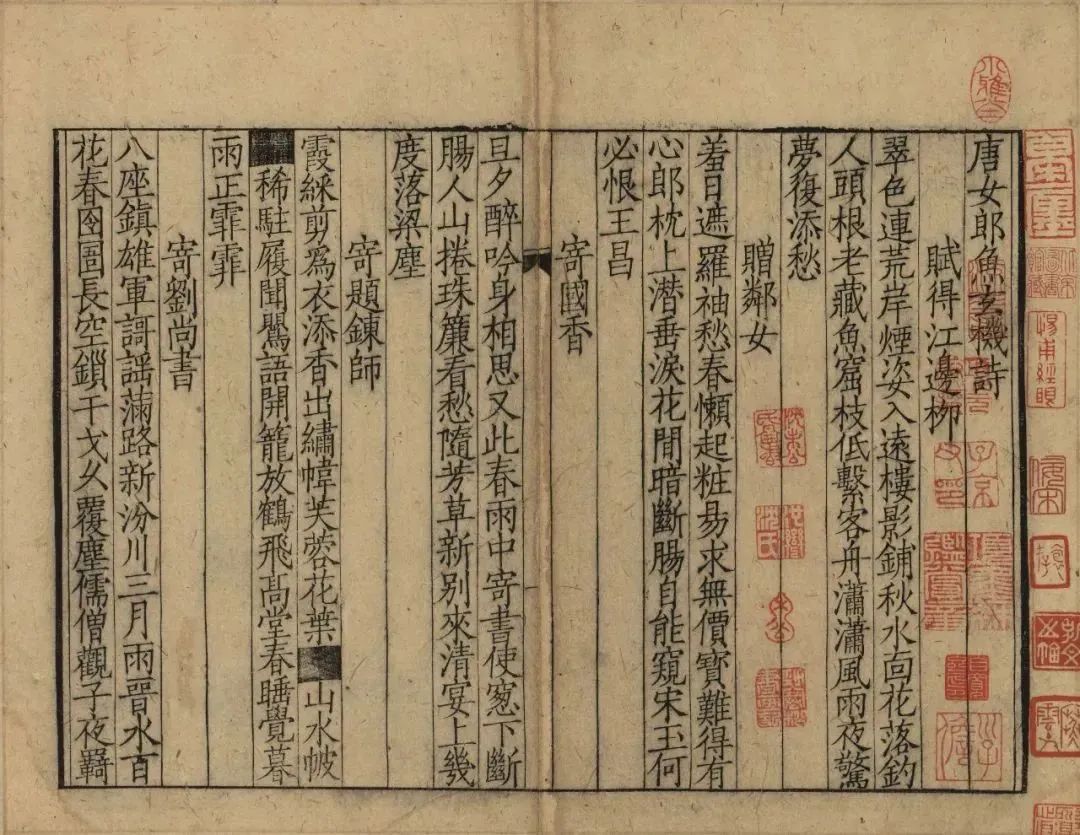 唐女郎魚玄機詩
賦得江邊柳
翠色連荒岸煙姿入遠樓影鋪秋水面花落釣
人頭根老藏魚窟枝低繫客舟瀟瀟風雨夜驚
夢復添愁
贈鄰女
羞日遮羅袖愁春懶起粧易求無價寶難得有
心郎枕上潛垂淚花間暗斷腸自能窺宋玉何
必恨王昌
寄國香
旦夕醉吟身相思又此春雨中寄書使窻下斷
腸人山捲珠簾看愁隨芳草新別來清宴上幾
度落梁塵
寄題鍊師
霞綵剪為衣添香出繡幃芙蓉花葉山水帔
稀駐履聞鶯語開籠放鶴飛高堂春睡覺暮
雨正霏霏
寄劉尚書
八座鎮雄軍謌謡滿路新汾川三月雨晉水百
花春囹圄長空鎖干戈久覆塵儒僧觀子夜羇